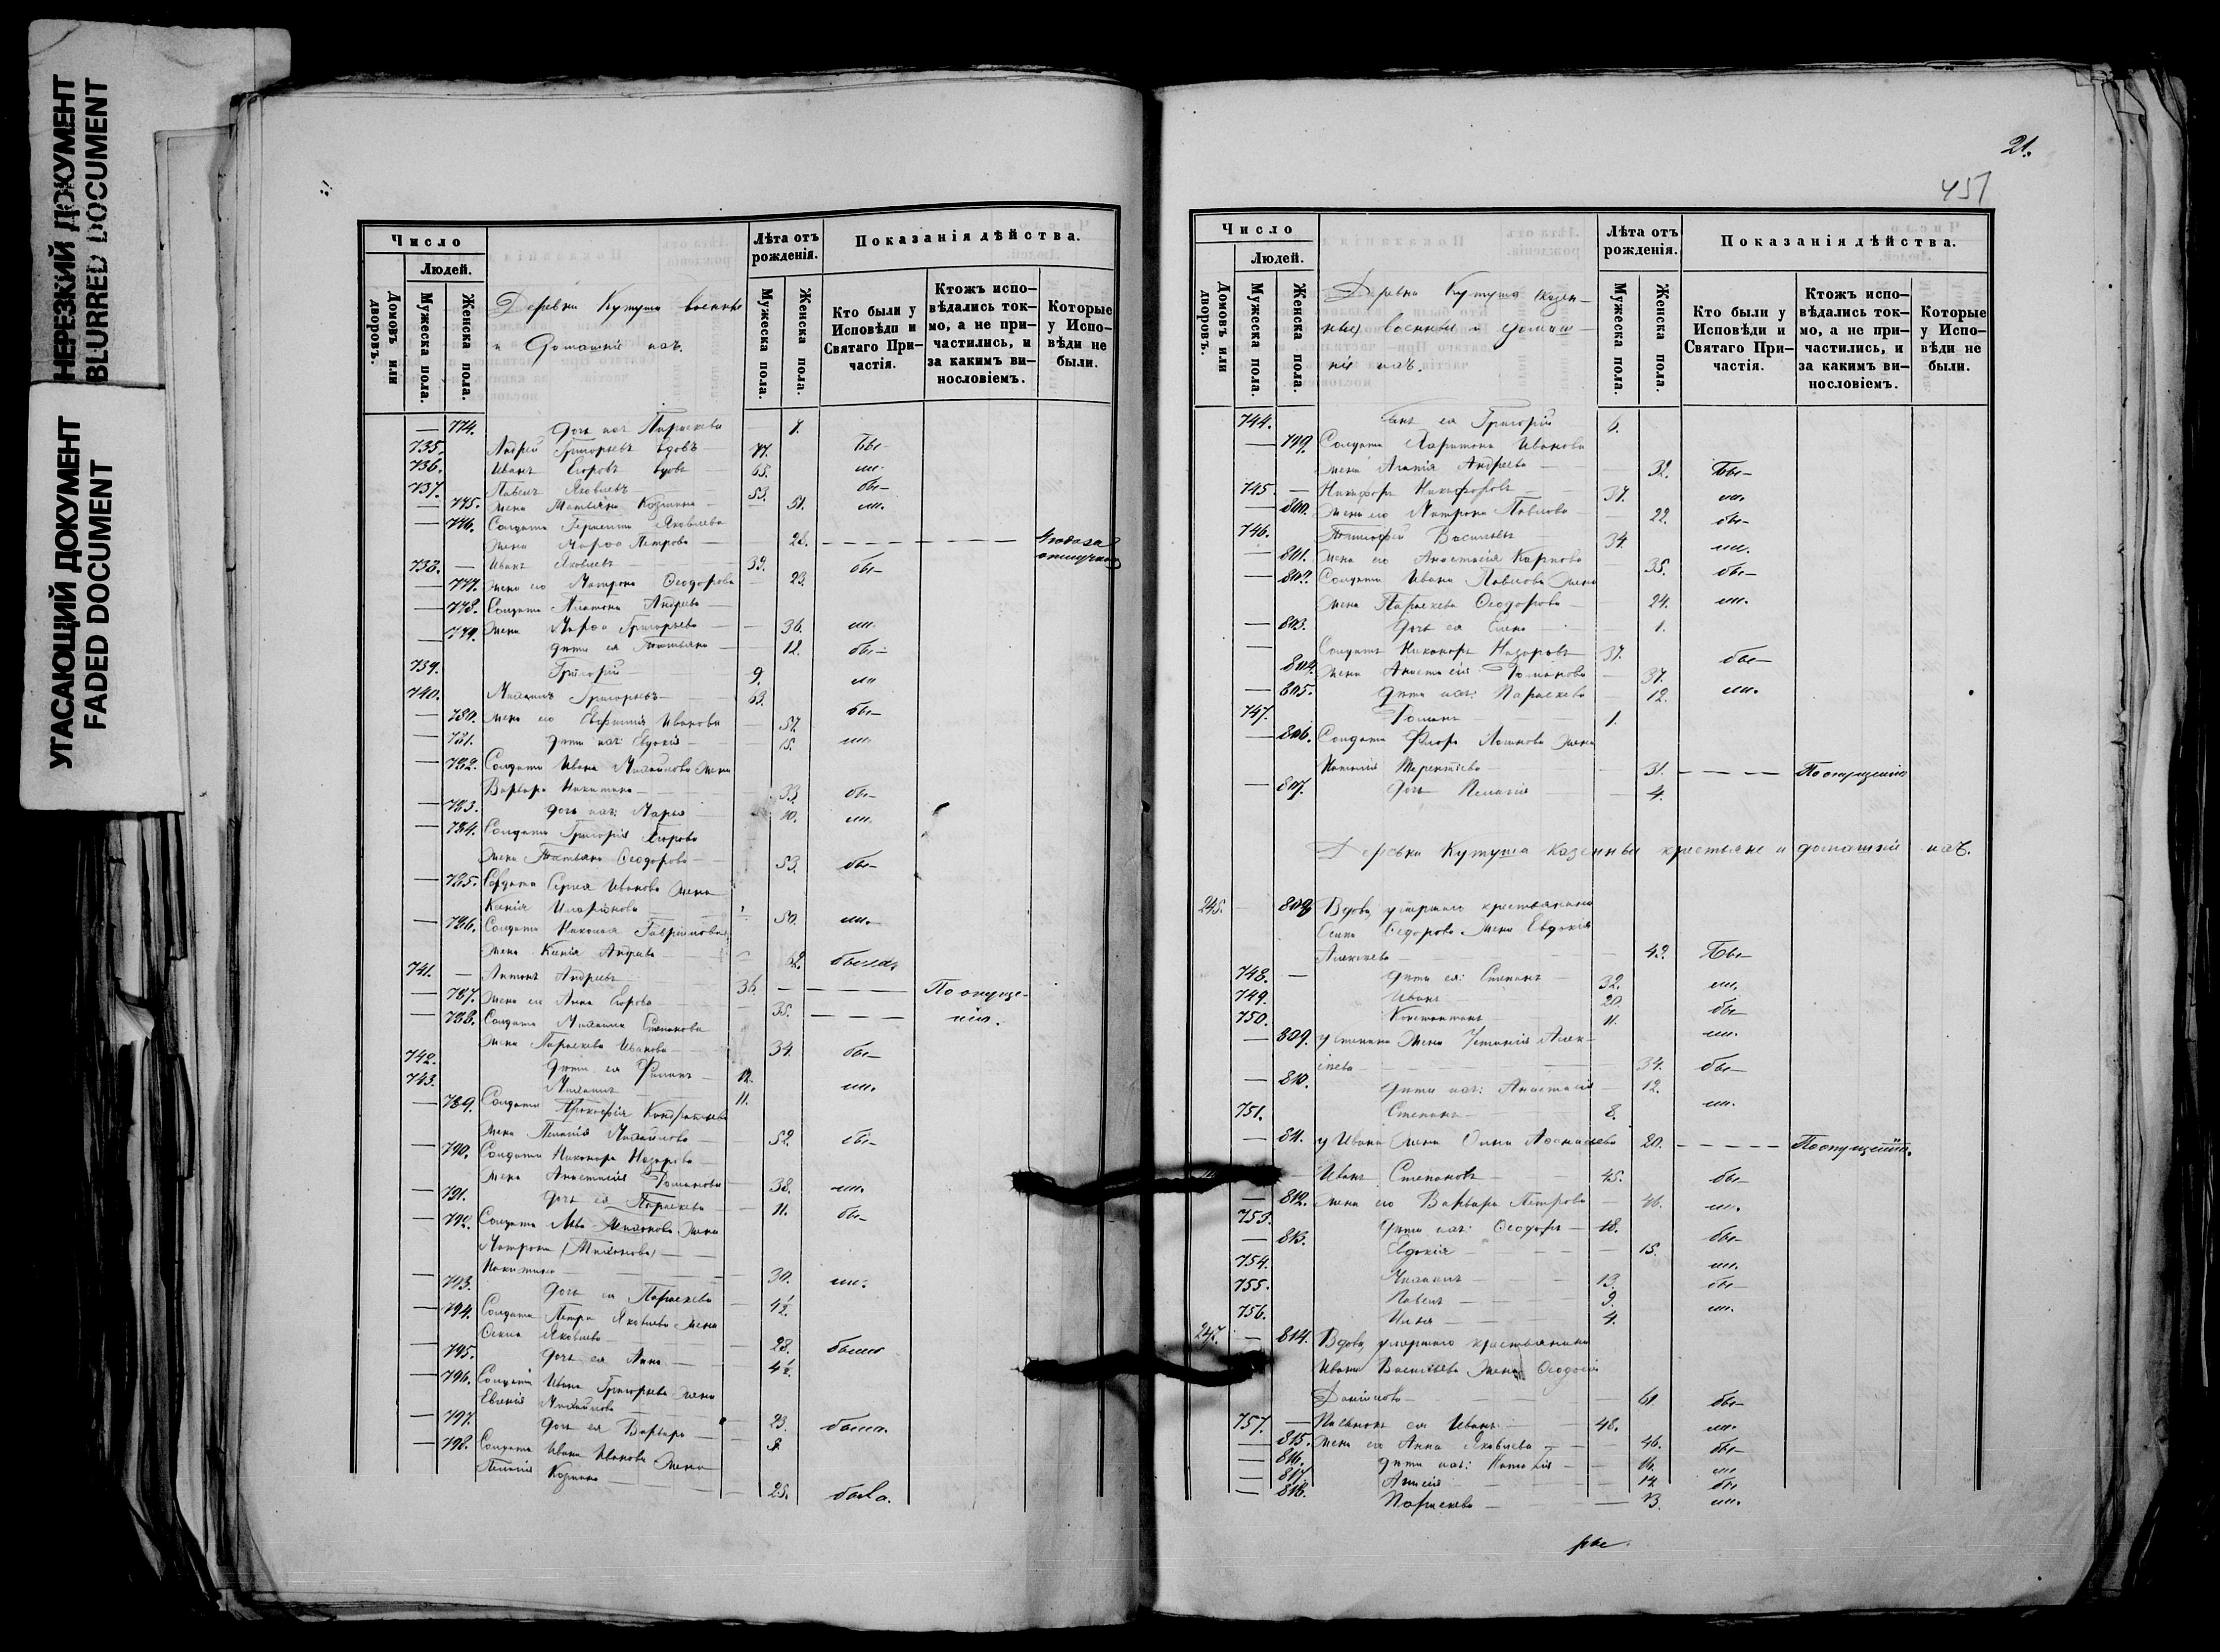 НЕРЕЗКИЙ ДОКУМЕНТ
BLURRED DOCUMENT
УГАСАЮЩИЙ ДОКУМЕНТ
FADED DOCUMENT
Число
Людей.
Домовъ или дворовъ.
Мужеска пола.
Женска пола.
Деревни Кутуша военные
и Домашніе ихъ.
Лѣта отъ рожденія.
Мужеска пола.
Женска пола.
Показанія дѣйства.
Кто были у Исповѣди и Святаго При-
частія.
Ктожъ испо-
вѣдались ток-
мо, а не при-
частились, и
за какимъ ви-
нословіемъ.
Которые
у Испо-
вѣди не
были.
— 774. Дочь ихъ Параскева — 7.
735. Андрей Григорьевъ вдовъ — 77. бы-
736. Иванъ Егоровъ вдовъ — 65. ли.
737. Павелъ Яковлевъ — 53. бы-
— 775. Жена Татьяна Козмина — 51. ли.
— 776. Солдата Терентія Яковлева
Жена Марѳа Петрова — 28. — — —
738. — Иванъ Яковлевъ — 32. бы-
— 777. Жена его Матрона Ѳеодорова — 23.
— 778. Солдата Платона Андреева —
— 779. Жена Марѳа Григорьева — 36. ли.
дѣти ея Татьяна — 12. бы-
739. Григорій — 9. ли
740. Михаилъ Григорьевъ — 63. бы-
— 780. Жена его Евфимія Иванова — 57.
— 781. дѣти ихъ: Евдокія — 15. ли.
— 782. Солдата Ивана Михайлова Жена
Варвара Никитина — 33. бы-
— 783. дочь ихъ: Марья — 10. ли.
— 784. Солдата Григорія Егорова
Жена Татьяна Ѳеодорова — 53. бы-
— 785. Солдата Сергея Иванова Жена
Ксенія Иларіонова — 50. ли.
— 786. Солдата Николая Гавриилова
Жена Ксенія Андреева — бы-
741. — Антонъ Андреевъ — 36. — — — По опуще-
— 787. Жена его Анна Егорова — 35. — — — нію.
— 788. Солдата Михаила Степанова
Жена Параскева Иванова — 34. бы-
742. дѣти ея Филипъ — 12.
743. Михаилъ — 11. ли.
— 789. Солдата Прокофія Кондратьева
Жена Пелагія Михайлова — 52. бы-
— 790. Солдата Никонора Назарова —
Жена Анастасія Романова — 38. ли.
— 791. дочь ея Параскева — 11. бы-
— 792. Солдата Жена
Матрона
Никитина — 30. ли.
— 793. дочь ея Параскева — 4½.
— 794. Солдата Петра Яковлева Жена
Яковлева — 28. были
— 795. дочь ея Анна — 4½
— 796. Солдата Ивана Григорьева Жена
Евгенія Михайлова — 23. была.
— 797. дочь ея Варвара — 3.
— 798. Солдата Ивана Иванова Жена
Пелагія Козмина — 25. была.
21.
457
Число
Людей.
Домовъ или дворовъ.
Мужеска пола.
Женска пола.
Деревни Кутуша казен-
ныхъ военные и домаш-
ніе ихъ.
Лѣта отъ рожденія.
Мужеска пола.
Женска пола.
Показанія дѣйства.
Кто были у Исповѣди и Святаго При-
частія.
Ктожъ испо-
вѣдались ток-
мо, а не при-
частились, и
за какимъ ви-
нословіемъ.
Которые
у Испо-
вѣди не
были.
744. Сынъ ея Григорій 6.
— 799. Солдата Харитона Иванова
Жена Агапія Андреева — 32. Бы-
745. — Никифоръ Никифоровъ — 37. ли.
— 800. Жена его Матрона Павлова — 22. бы-
746. Тимофей Васильевъ — 34. ли.
— 801. Жена его Анастасія Карпова — 35. бы-
— 802. Солдата Ивана Павлова Жена
Жена Параскева Ѳеодорова — 24. ли.
— 803. дочь ея Елена — 1.
Солдатъ Никоноръ Назаровъ — 37. бы-
— 804. Жена Анастасія Романова — 37.
— 805. дѣти ихъ: Параскева — 12. ли.
747. Романъ — 1.
— 806. Солдата Флора Логинова Жена
Наталія Терентьева — 31. — — — По опущенію
— 807. дочь Пелагія — 4.
Деревни Кутуша казенные крестьяне и домашніе ихъ.
245. 808. Вдова, умершаго крестьянина
Осипа Ѳедорова Жена Евдокія
Алексѣева — 42. Бы-
748. — дѣти ея: Степанъ — 32. ли.
749. Иванъ — 20. бы-
750. Константинъ — 11. ли.
— 809. у Степана Жена Устинія Алек-
сѣева — 34. бы-
— 810. дѣти ихъ: Анастасія — 12.
751. Степанъ — 8. ли.
— 811. у Ивана Жена Анна Аѳанасьева 20. — — — По опущенію.
Иванъ Степановъ — 45. бы-
— 812. Жена его Варвара Петрова — 46. ли.
753. дѣти ихъ: Ѳеодоръ — 18. бы-
— 813. Евдокія — 15. ли.
754. Михаилъ — 13. бы-
755. Павелъ — 9. ли.
756. Илья — 4.
247. — 814. Вдова, умершаго крестьянина
Ивана Васильева Жена Ѳеодосія
Данилова — 61. бы-
757. — Пасынокъ ея Иванъ — 48. ли.
— 815. Жена его Анна Яковлева — 46. бы-
— 816. дѣти ихъ: Наталія — 16. ли
— 817. Анисія — 14. бы
— 818. Параскева — 13. ли.